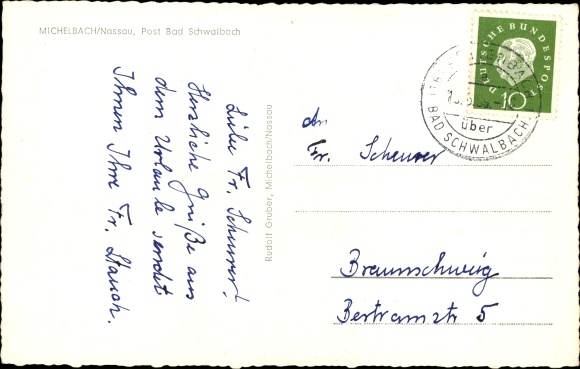 MICHELBACH/Nassau, Post Bad Schwalbach
Liebe Fr. Scheurer!
Herzliche Grüße aus
dem Urlaube sendet
Ihnen Ihre Fr. Stauch.
Rudolf Gruber, Michelbach/Nassau
DEUTSCHE BUNDESPOST
10
über
BAD SCHWALBACH
An
Fr. Scheurer
Braunschweig
Bertramstr 5